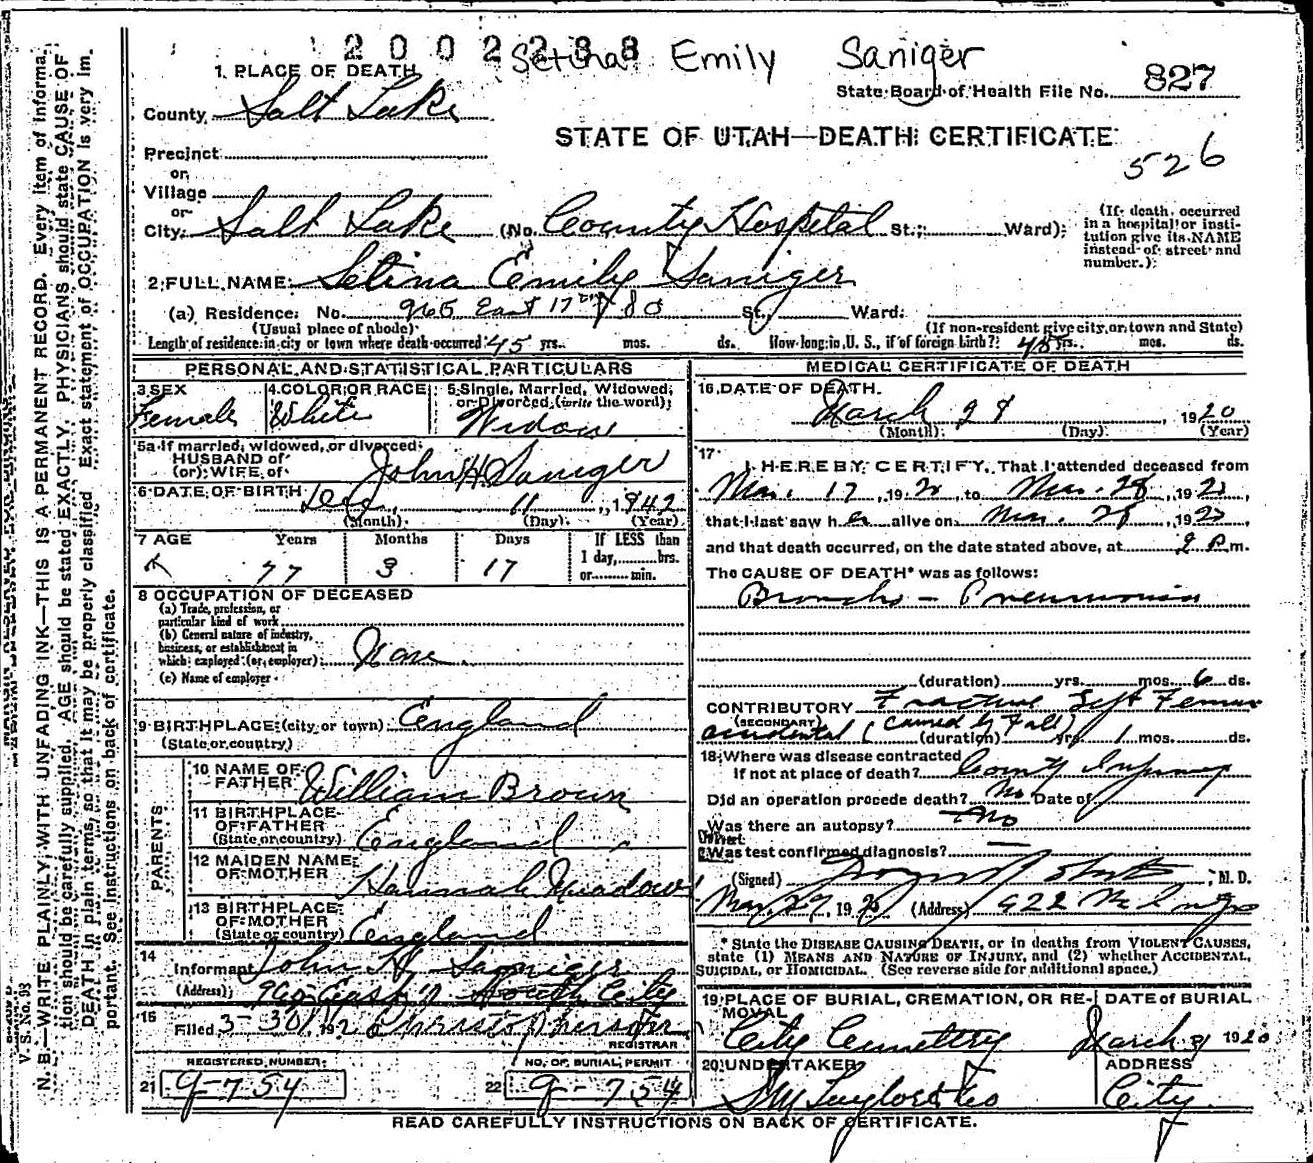 2002288
Setina Emily Saniger
1. PLACE OF DEATH
State Board of Health File No. 827
County Salt Lake
STATE OF UTAH—DEATH CERTIFICATE
526
Precinct
or
Village
or
City Salt Lake (No. County Hospital St.; Ward);
(If death occurred in a hospital or insti-
tution give its NAME
instead of street and
number.)
2 FULL NAME Setina Emily Saniger
(a) Residence: No. 965 East 17 So St., Ward.
(Usual place of abode) (If non-resident give city or town and State)
Length of residence in city or town where death occurred 45 yrs. mos. ds. How long in U. S., if of foreign birth? 45 yrs. mos. ds.
PERSONAL AND STATISTICAL PARTICULARS
3 SEX Female
4 COLOR OR RACE White
5 Single, Married, Widowed,
or Divorced (write the word)
Widow
5a If married, widowed, or divorced
HUSBAND of
(or) WIFE of John H Saniger
6 DATE OF BIRTH Dec. 11, 1842
(Month) (Day) (Year)
7 AGE Years Months Days If LESS than
1 day, hrs.
or min.
77 3 17
8 OCCUPATION OF DECEASED
(a) Trade, profession, or
particular kind of work
(b) General nature of industry,
business, or establishment in
which employed (or employer) None.
(c) Name of employer
9 BIRTHPLACE (city or town) England
(State or country)
PARENTS
10 NAME OF
FATHER William Brown
11 BIRTHPLACE
OF FATHER
(State or country) England
12 MAIDEN NAME
OF MOTHER Hannah Meadows
13 BIRTHPLACE
OF MOTHER
(State or country) England
14
Informant John H. Saniger
(Address) East 17 South City
15
Filed 3-30, 192
REGISTRAR
REGISTERED NUMBER
21 9-754
NO. OF BURIAL PERMIT
22 9-754
MEDICAL CERTIFICATE OF DEATH
16 DATE OF DEATH
March 28 1920
(Month) (Day) (Year)
17
I HEREBY CERTIFY, That I attended deceased from
Mar. 17, 1920, to Mar. 28, 1920,
that I last saw her alive on Mar. 28, 1920
and that death occurred, on the date stated above, at 9 P.m.
The CAUSE OF DEATH* was as follows:
Broncho - Pneumonia
(duration) yrs. mos. 6 ds.
CONTRIBUTORY Fracture Left Femur
(SECONDARY)
accidental (caused by Fall)
(duration) yrs. 1 mos. ds.
18 Where was disease contracted
if not at place of death? County Infirmary
Did an operation precede death? No Date of
Was there an autopsy? No
What
Was test confirmed diagnosis? —
(Signed) , M. D.
Mar 29, 1920 (Address) 922
* State the DISEASE CAUSING DEATH, or in deaths from VIOLENT CAUSES,
state (1) MEANS AND NATURE OF INJURY, and (2) whether ACCIDENTAL,
SUICIDAL, or HOMICIDAL. (See reverse side for additional space.)
19 PLACE OF BURIAL, CREMATION, OR RE-
MOVAL
City Cemetery
DATE of BURIAL
March 31 1920
20 UNDERTAKER
S M Taylor & Co
ADDRESS
City
READ CAREFULLY INSTRUCTIONS ON BACK OF CERTIFICATE.
V. S. No. 93
N. B.—WRITE PLAINLY, WITH UNFADING INK—THIS IS A PERMANENT RECORD. Every item of informa-
tion should be carefully supplied. AGE should be stated EXACTLY. PHYSICIANS should state CAUSE OF
DEATH in plain terms, so that it may be properly classified. Exact statement of OCCUPATION is very im-
portant. See instructions on back of certificate.